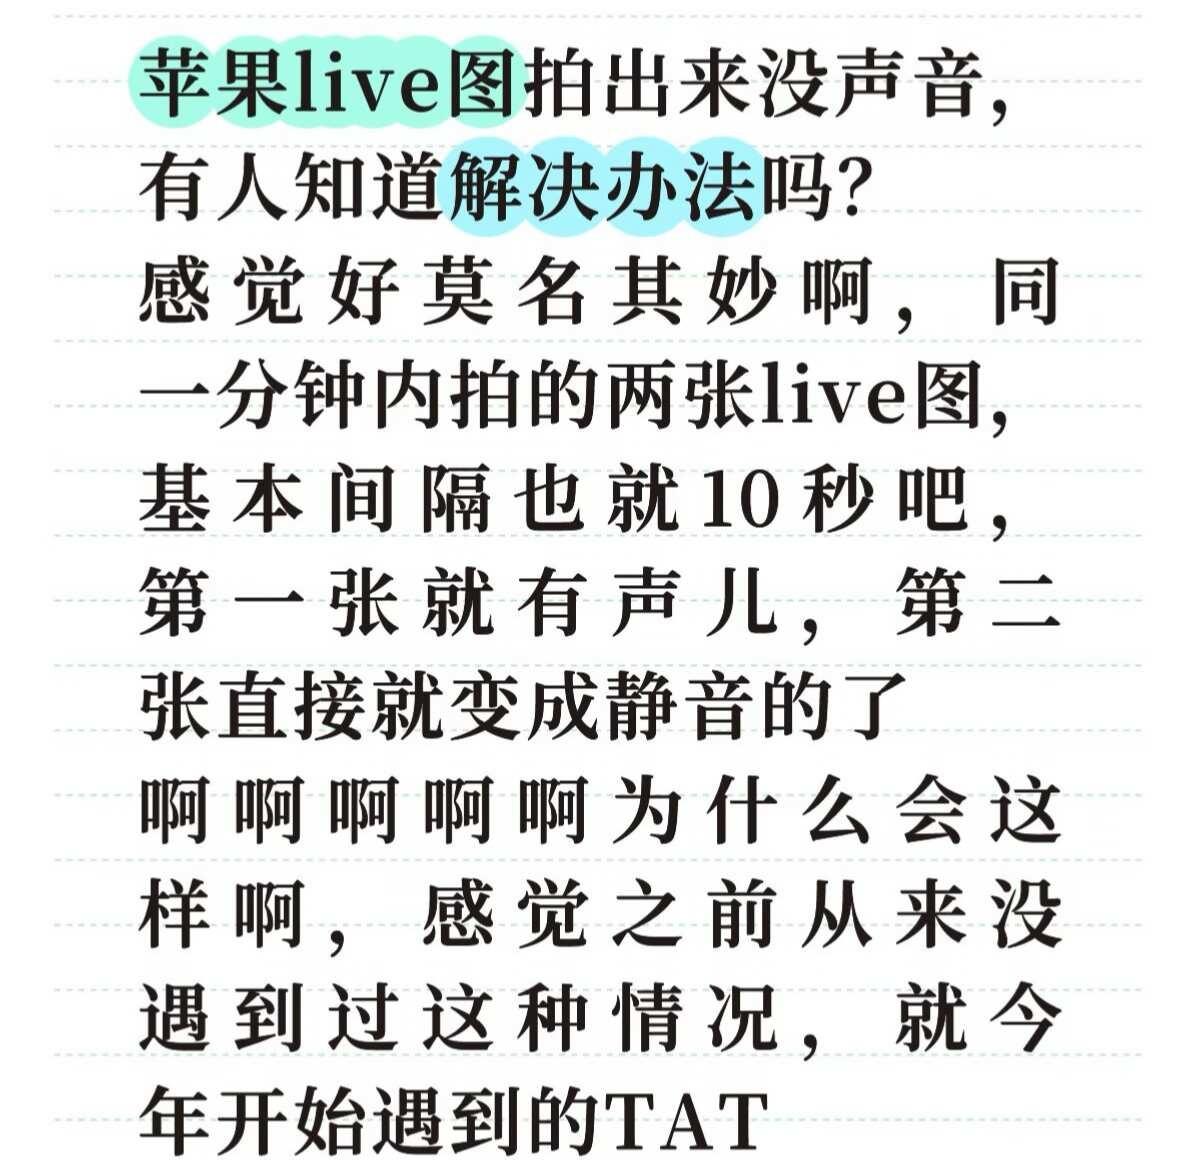 苹果live图拍出来没声音,
有人知道解决办法吗?
感觉好莫名其妙啊,同
一分钟内拍的两张live图,
基本间隔也就10秒吧,
第一张就有声儿,第二
张直接就变成静音的了
啊啊啊啊啊为什么会这
样啊,感觉之前从来没
遇到过这种情况,就今
年开始遇到的TAT